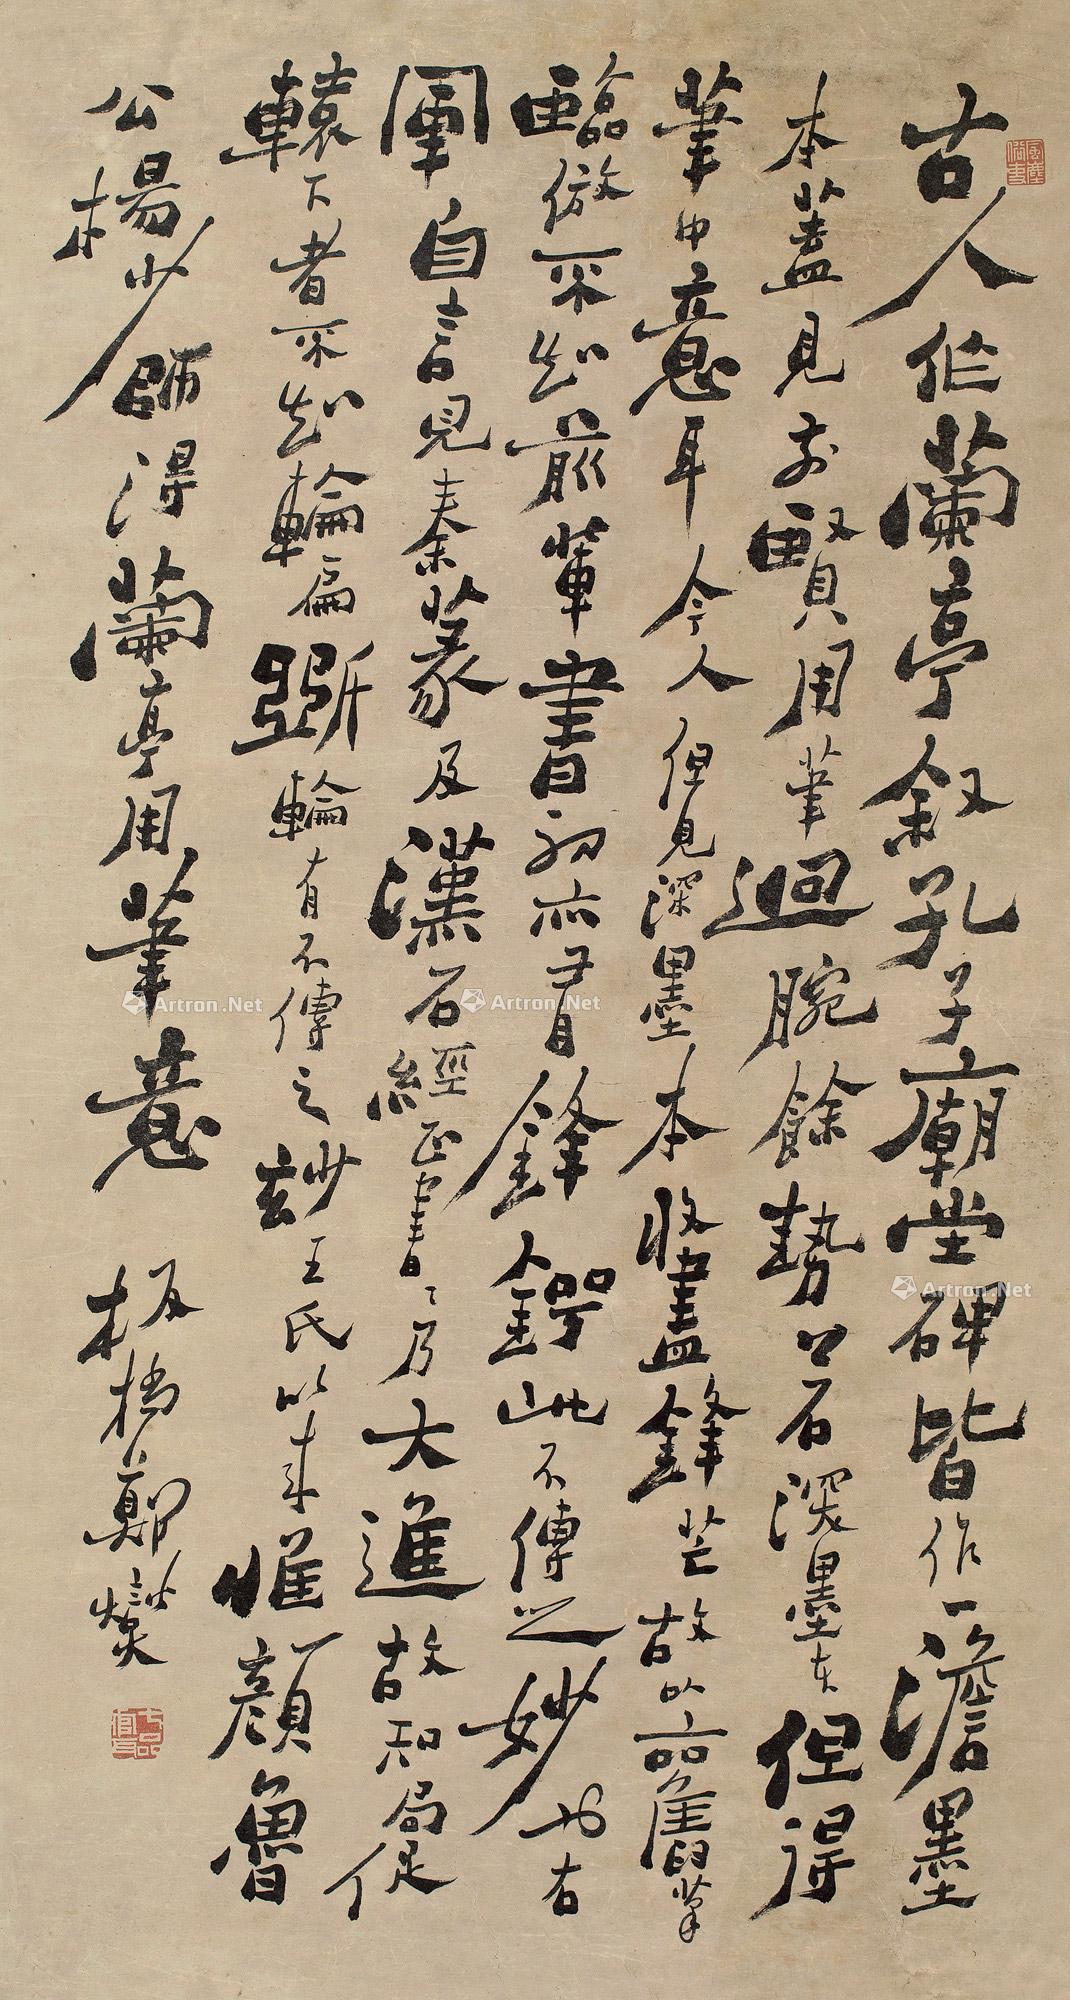 古人作蘭亭叙孔子廟堂碑皆作一澹墨
本蓋見前賢用筆迴腕餘勢若深墨本但得
筆中意耳今人但見深墨本收盡鋒芒故以舊筆
臨倣不知前輩書初亦有鋒鍔此不傳之妙也右
軍自言見秦篆及漢石經正書〻乃大進故知局促
轅下者不知輪扁斲輪有不傳之玅王氏以来惟顏魯
公楊少師得蘭亭用筆意 板橋鄭燮
七品官耳
Artron.Net
Artron.Net
Artron.Net